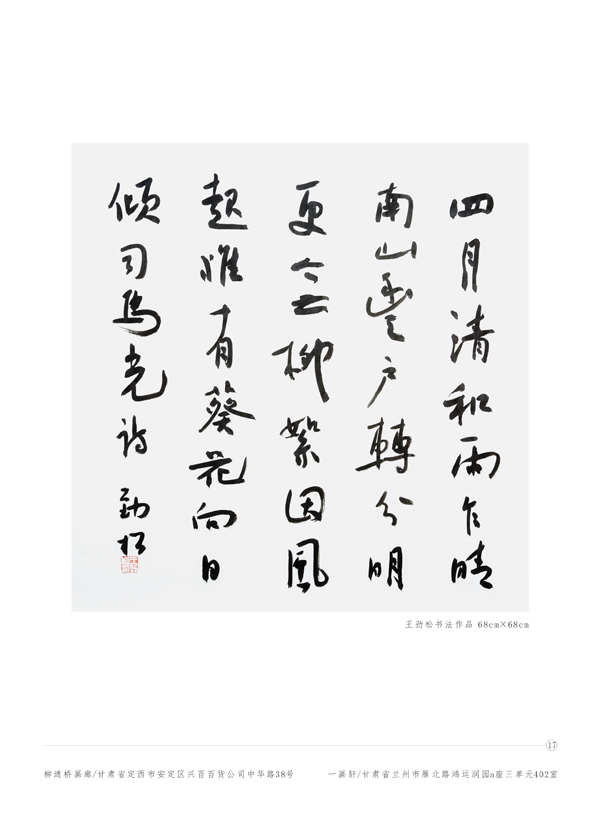 四月清和雨乍晴
南山當户轉分明
更無柳絮因風
起惟有葵花向日
傾司馬光詩 勁松
王劲松书法作品 68cm×68cm
17
柳逮桥画廊/甘肃省定西市安定区兴百百货公司中华路38号
一画轩/甘肃省兰州市雁北路鸿运润园a座三单元402室